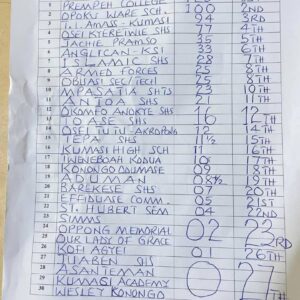 PREMPEH COLLEGE
OPOKU WARE SCH 100 2ND
T.I. AMASS - KUMASI 94 3RD
OSEI KYEREIWIE SHS 77 4TH
JACHIE PRAMSO 35 5TH
ANGLICAN - KSI 33 6TH
ISLAMIC SHS 28 7TH
ARMED FORCES 25 8TH
OBUASI SEC/TECH 25
MPASATIA SHS 23 10TH
ANTOA SHS 21 11TH
OKOMFO ANOKYE SHS 16 12TH
OASE SHS
OSEI TUTU - AKROPONG 12 14TH
TEPA SHS 11½ 15TH
KUMASI HIGH SCH 11 16TH
TWENEBOAH KODUA 10 17TH
KONONGO ODUMASE 09 18TH
ADUMAN 08½ 19TH
BAREKESE SHS 07 20TH
EFFIDUASE COMM. 05 21ST
ST. HUBERT SEM 04 22ND
SIMMS
OPPONG MEMORIAL 02 23RD
OUR LADY OF GRACE
KOFI AGYEI 01 26TH
JUABEN SHS
ASANTEMAN 0 27TH
KUMASI ACADEMY
WESLEY KONONGO